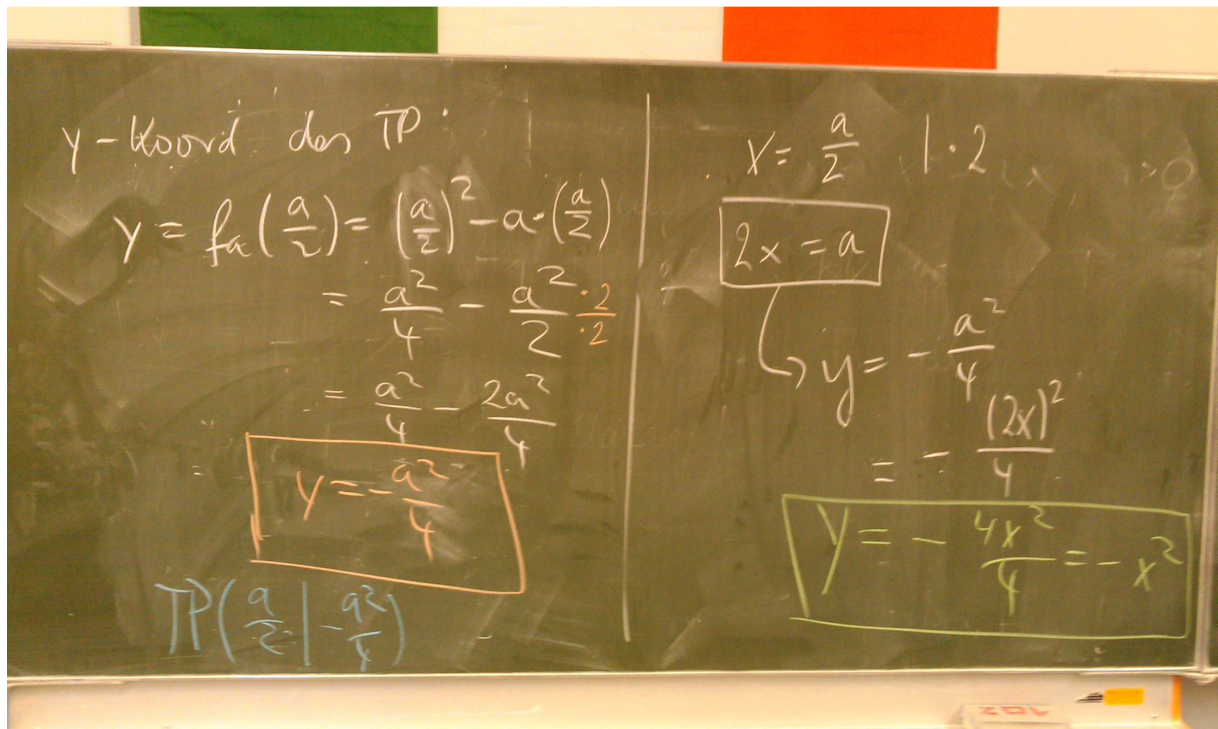 y-Koord des TP
y = fa(a/2) = (a/2)² - a·(a/2)
= a²/4 - a²/2 ·2/·2
= a²/4 - 2a²/4
=
y = -a²/4
TP(a/2 | -a²/4)
x = a/2 |·2
2x = a
y = -a²/4
= -(2x)²/4
y = -4x²/4 = -x²